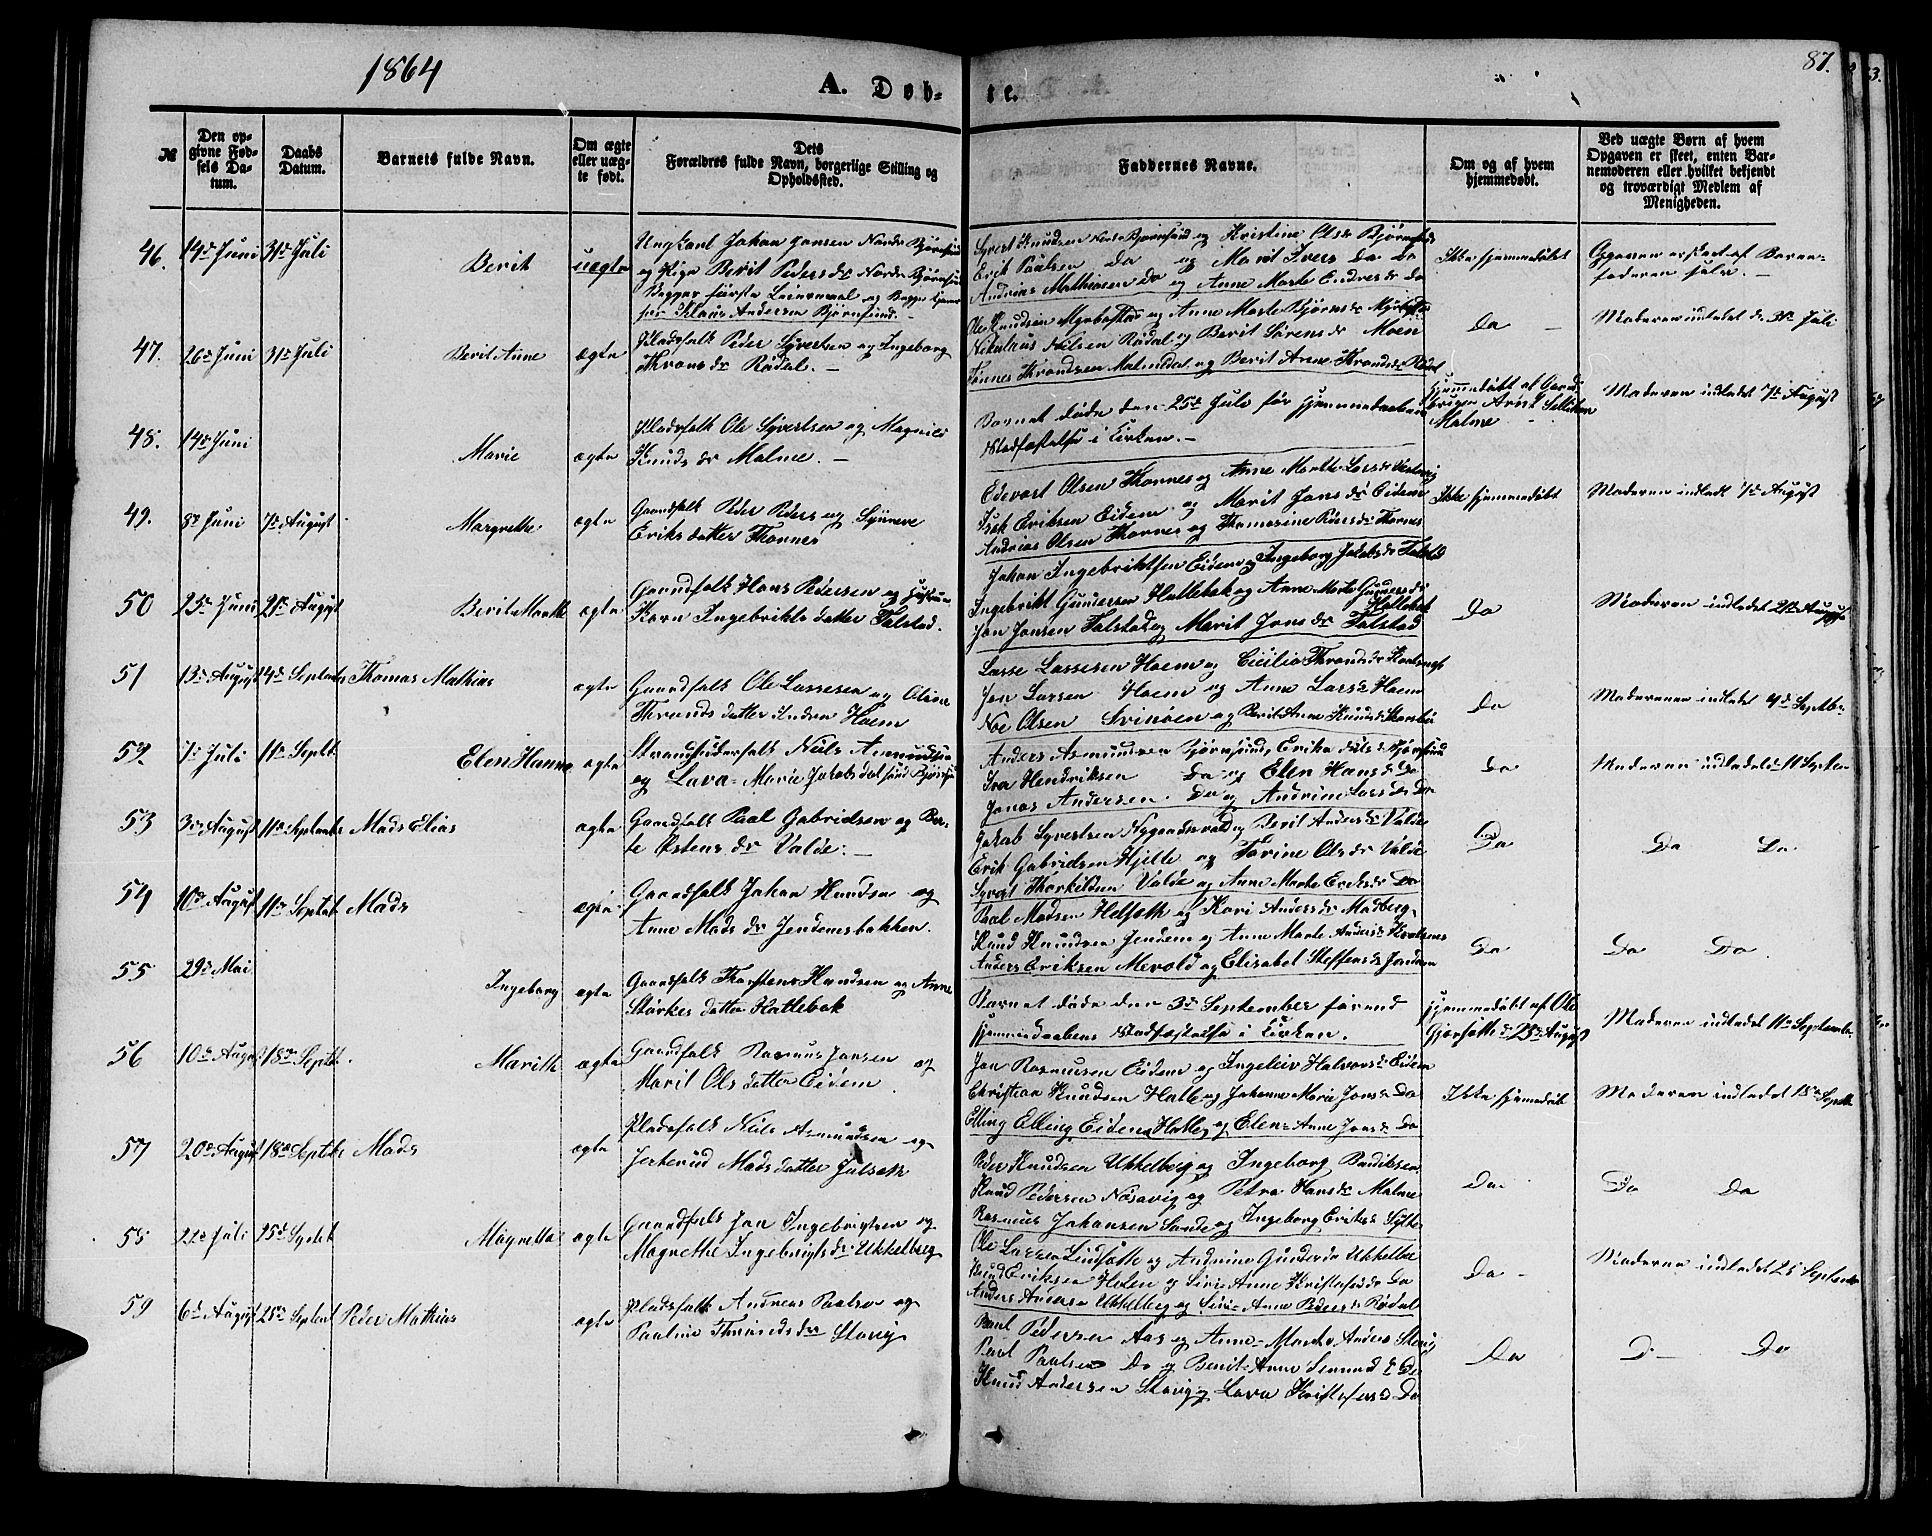 1864
A. Døb-
te.
87.
№
Den op-
givne Fød-
sels Da-
tum.
Daabs
Datum.
Barnets fulde Navn.
Om ægte
eller uæg-
te født.
Dets
Forældres fulde Navn, borgerlige Stilling og
Opholdssted.
Faddernes Navne.
Om og af hvem
hjemmedøbt.
Ved uægte Børn af hvem
Opgaven er skeet, enten Bar-
nemoderen eller hvilket bekjendt
og troværdigt Medlem af
Menigheden.
46. 14de Juni 31te Juli Berit uægte
Ungkarl Johan Jonsen Nordre Bjørnsund
og Pige Berit Pedersdr Nordre Bjørnsund
Begges første Leiermaal og Begge tjene
hos Klaus Andersen Bjørnsund. -
Syvert Knudsen Nordre Bjørnsund og Kristine Olsdr Bjørnsund
Erik Paulsen Do og Marit Ivers Do Do
Andrias Mathiasen Do og Anne Marte Endresdr Do
Ikke hjemmedøbt
Opgaven er skeet af Barne-
faderen selv. -
47. 26de Juni 31te Juli Berit Anne ægte
Pladsfolk Peder Syvertsen og Ingeborg
Thronsdr Rødal. -
Ole Knudsen Myrbostad og Anne Marte Bjørnsdr Myrbostad
Nikolaus Nilsen Rødal og Berit Sørensdr Moen
Tønnes Throndsen Malmedal og Berit Anne Thronsdr Rødal
Do -
Moderen indledet d. 31te Juli
48. 14de Juni Marie ægte
Pladsfolk Ole Syvertsen og Magnild
Knudsdr Malme. -
Barnet døde den 25de Juli før hjemmedaabens
Stadfæstelse i Kirken. -
Hjemmedøbt af Gaard-
bruger Arnt
Malme
Moderen indledet 7de August
49. 8de Juni 7de August Margrethe ægte
Gaardfolk Peder Peders og Synneve
Eriksdatter Thornes
Edevart Olsen Thornes og Anne Marte Larsdr
Isak Eriksen Eidem og Marit Jonsdr Eidem
Andrias Olsen Thornes og Thomasine Pedersdr Thornes
Ikke hjemmedøbt
Moderen indledt 7de August
50 25de Juni 21de August Berit Marthe ægte
Gaardfolk Hans Pedersen og Hustru
Karn Ingebriktsdatter Talstad.
Johan Ingebriktsen Eidem og Ingeborg Jakobsdr Talstad
Ingebrikt Gundersen Hallebak og Anne Marte Gundersdr
Hallebak
Jon Jonsen Talstad og Marit Jonsdr Talstad
Do
Moderen indledet 21de August
51 13de August 4de Septembr Thomas Mathias ægte
Gaardfolk Ole Lassesen og Oline
Throndsdatter Indre Hoem
Lasse Lassesen Hoem og Cicilia Throndsdr
Jon Larsen Hoem og Anne Larsdr Hoem
Noe Olsen Svinøen og Berit Anne Knudsdr
Do
Moderen indledet 4de Septbr
52. 7de Juli 11te Septb Elen Hanna ægte
Strandsidderfolk Nils Asmundsen
og Lava-Marie Jakobsdatter Bjørnsund
Anders Asmundsen Bjørnsund, Erika Bjørnsund
Iver Hendriksen Do og Elen Hansdr Do
Jonas Andersen Do og Andrine Larsdr Do
Do
Moderen indledet 11 Septem
53 3de August 11te Septembr Mads Elias ægte
Gaardfolk Paal Gabrielsen og Ber-
te Østensdr Valde. -
Jakob Syvertsen Nygaardsvold og Berit Andersdr Valde
Erik Gabrielsen Hjelle og Torine Olsdr Valde
Syvert Thorkildsen Valde og Anne Marte Eriksdr Do
Do
Do Do
54 10de August 11te Septbr Mads ægte
Gaardfolk Johan Knudsen og
Anne Madsdr Jendemsbakken.
Paal Madsen Helseth og Kari Andersdr Madberg
Knud Knudsen Jendem og Anne Marte Andersdr
Anders Eriksen Mevold og Elisabet Steffensdr Jendem
Do
Do Do
55 29de Mai Ingeborg ægte
Gaardfolk Thorsten Knudsen og Anne
Størkersdatter Hallebak
Barnet døde den 3de September førend
hjemmedaabens Stadfæstelse i Kirken.
Hjemmedøbt af Ole
Gjerseth d. 23de August
Moderen indledet 11te Septembr
56 10de August 18de Septb. Marith ægte
Gaardfolk Rasmus Jonsen og
Marit Olsdatter Eidem
Jon Rasmusen Eidem og Ingeleiv Halvorsdr Eidem
Christian Knudsen Halle og Johanne Marie Jonsdr Do
Elling Elling Eidem Halle og Elen-Anne Jonsdr Do
Ikke hjemmedøbt
Moderen indledet 18de Septb
57 20de August 18de Septbr Mads ægte
Pladsfolk Nils Asmundsen og
Jertrud Madsdatter Julseth
Peder Knudsen Ukkelberg og Ingeborg Bendiksen
Knud Pedersen Nøsavig og Petra Hansdr Malme
Rasmus Johansen Sande og Ingeborg Eriksdr Sylte
Do
Do Do
58 22de Juli 25de Septbr Magnetta ægte
Gaardfolk Jon Ingebrigtsen og
Magnethe Ingebrigtsdr Ukkelberg
Ole Larsen Lindseth og Andrine Gundersdr Ukkelberg
Knud Eriksen Holen og Siri-Anne Kristofersdr Do
Anders Andersen Ukkelberg og Siri-Anne Pedersdr Rødal
Do -
Moderen indledet 25 Septembr
59 6de August 25de Septbr Peder Mathias ægte
Pladsfolk Andreas Paalsen og
Pauline Throndsdr Stavig
Paul Pedersen Aas og Anne-Marte Anders Stavig
Paul Paalsen Do og Berit-Anne
Knud Andersen Stavig og Lava Kristofersdr Do
Do
D- Do